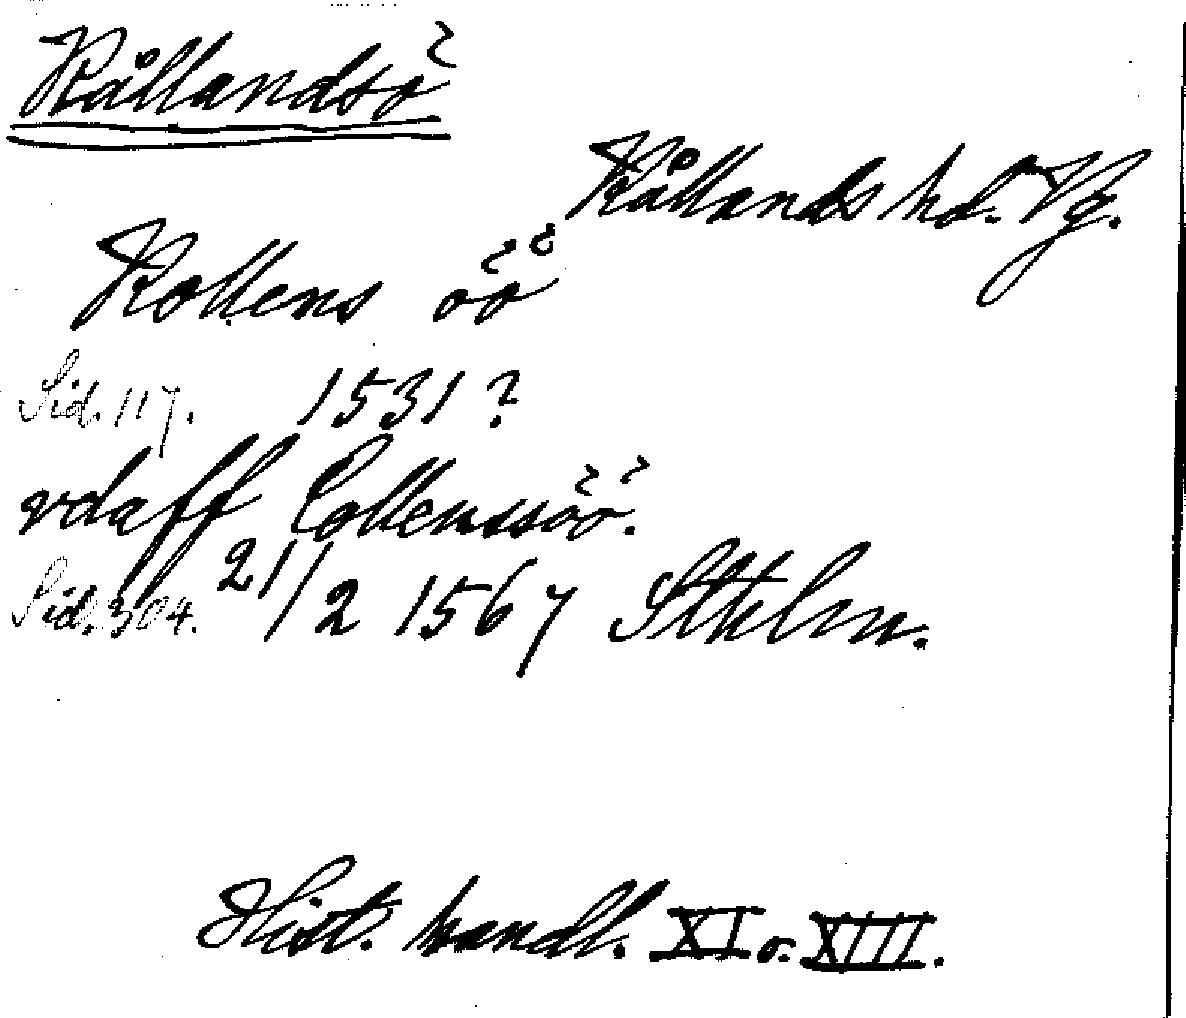 Kållandsö
Kållands hd. Vg.
Kollens öö
Sid. 117. 1531?
vdaff Collenssöö.
Sid. 304. 21/2 1567 Sthlm.
Hist. handl. XI o. XIII.